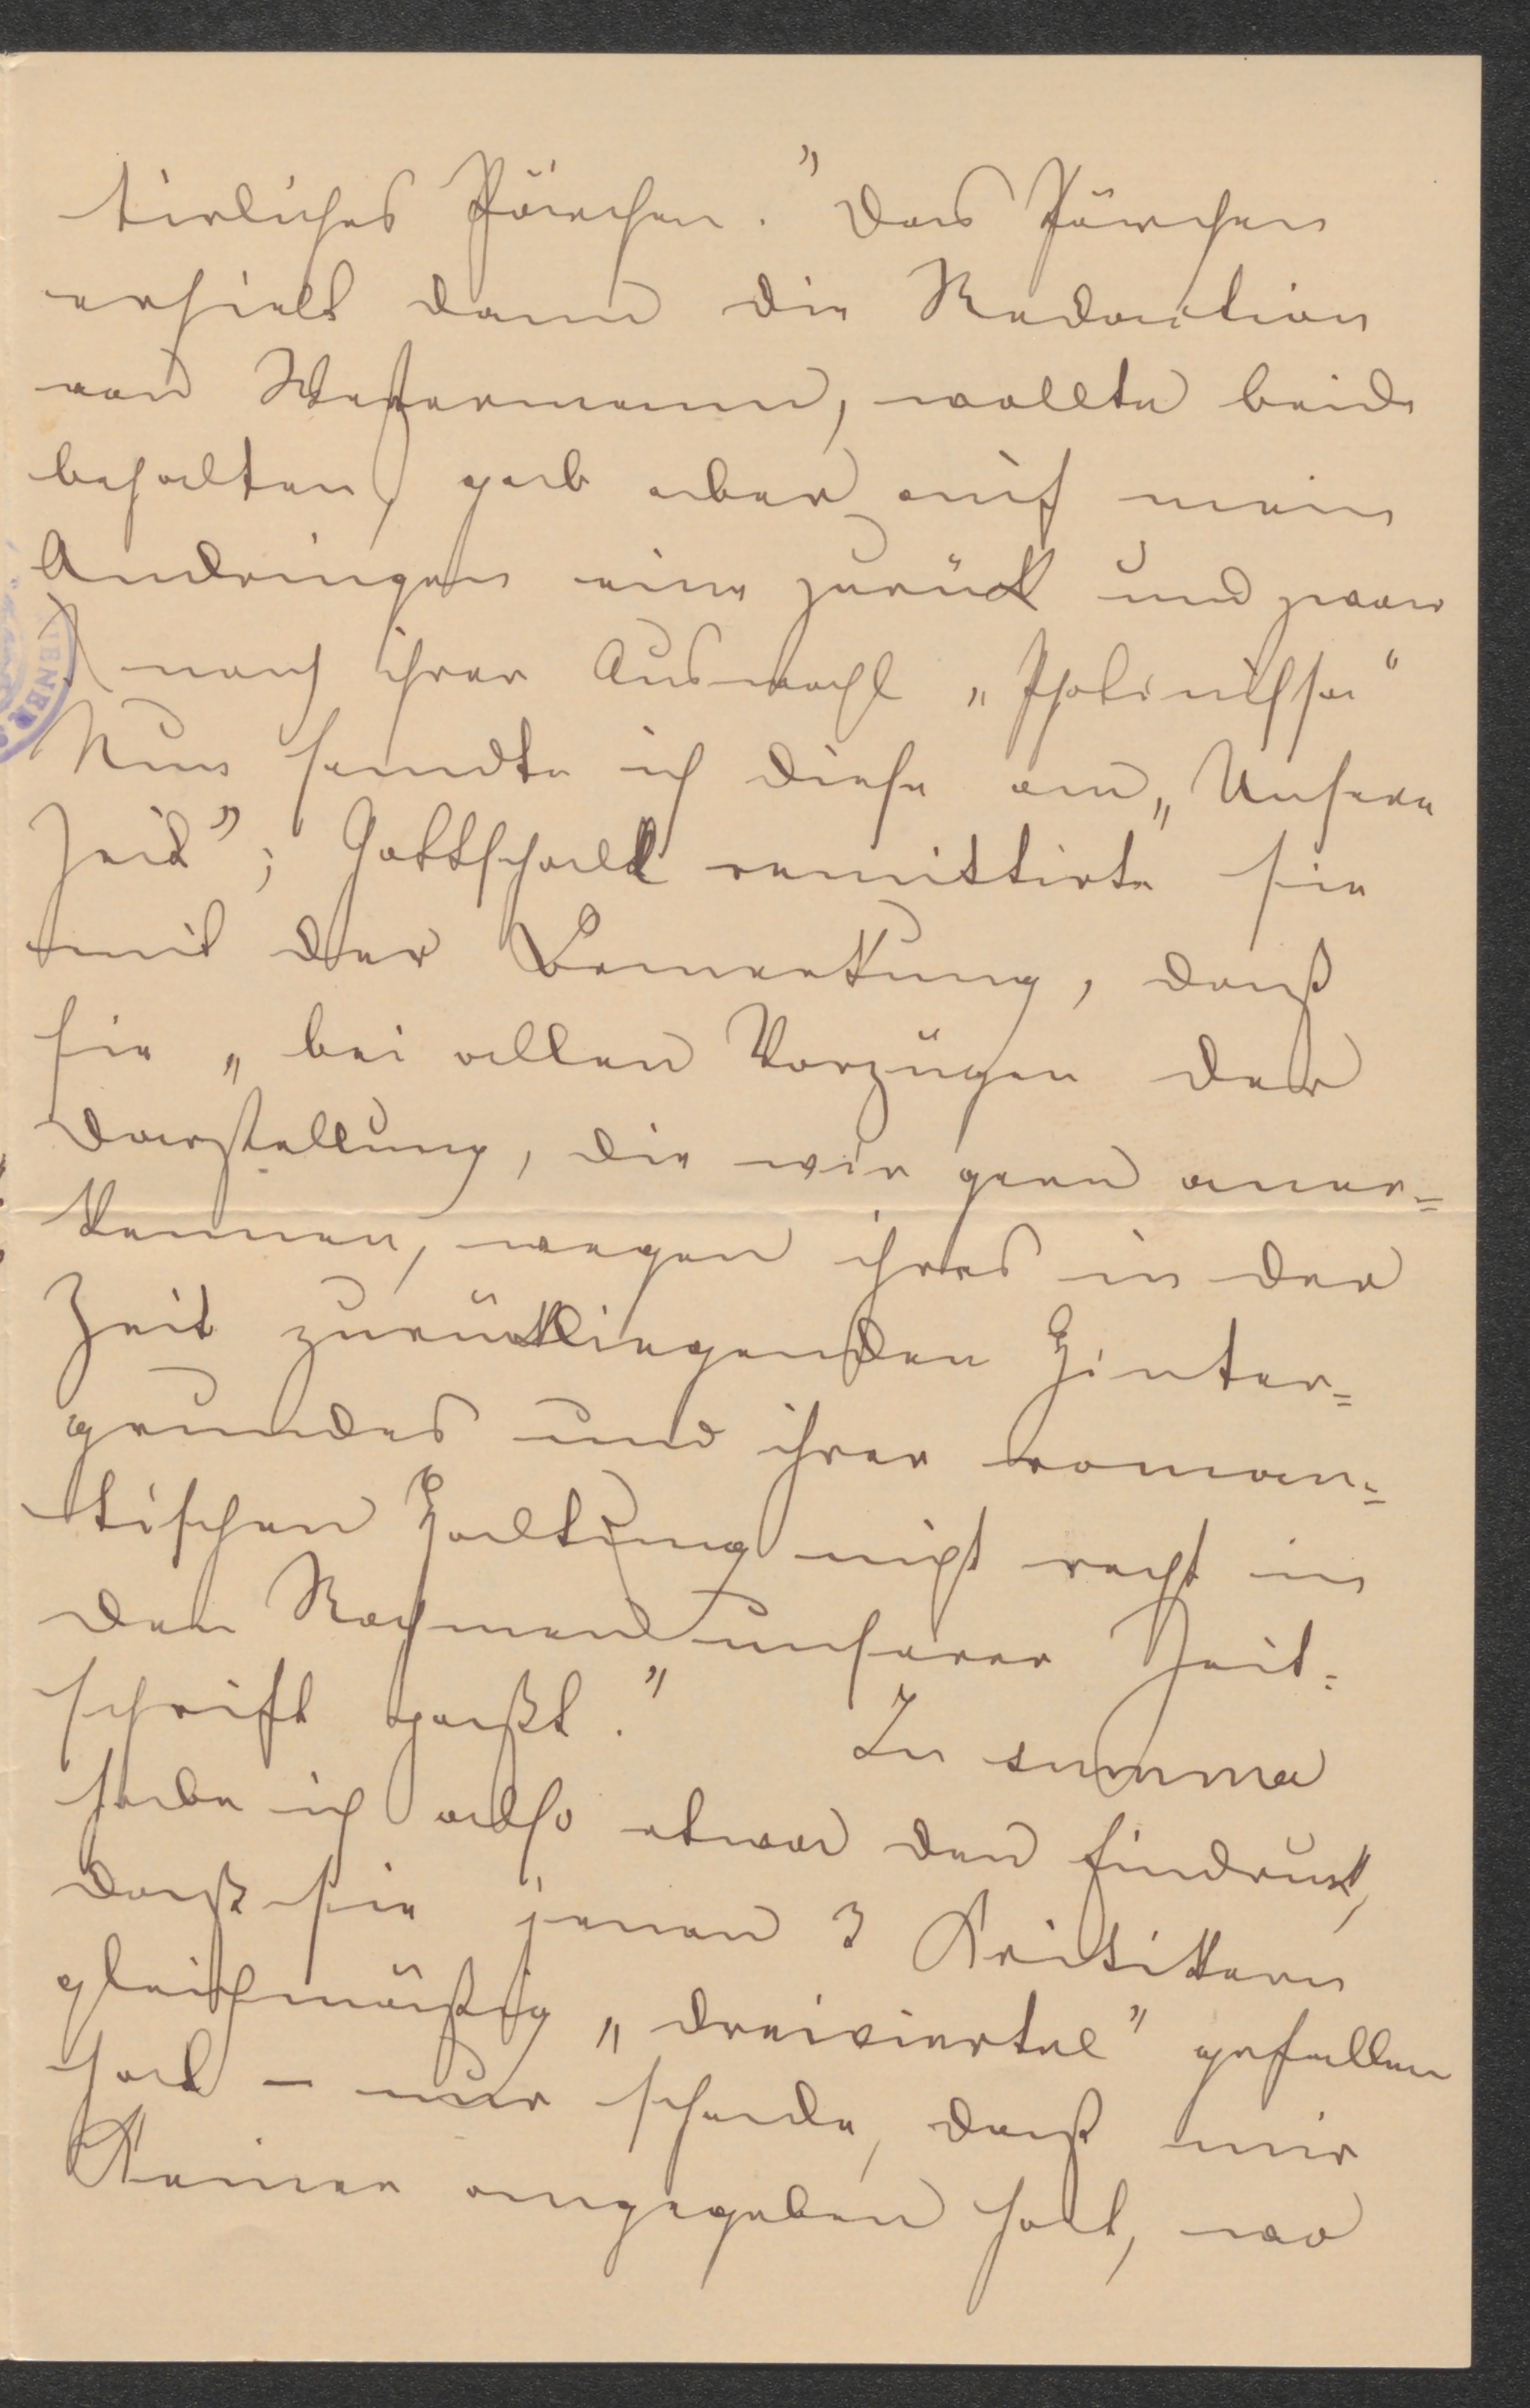 tierliches Pärchen." Das Pärchen
erhielt dann die Redaction
von Westermann, wollte beide
behalten, gab aber auf mein
Andringen eine zurück und zwar
nach ihrer Auswahl „Pholinissa"
Nun sandte ich diese an „Unsere
Zeit"; Gottschall remittirte sie
mit der Bemerkung, daß
sie „bei allen Vorzügen der
Darstellung, die wir gern aner=
kennen, wegen ihres in der
Zeit zurückliegenden Hinter=
grundes und ihrer roman=
tischen Haltung nicht recht in
den Rahmen unserer Zeit=
schrift paßt." In summa
habe ich also etwa den Eindruck,
daß sie jenen 3 Kritikern
gleichmäßig „dreiviertel" gefallen
hat – nur schade, daß mir
Keiner angegeben hat, wo